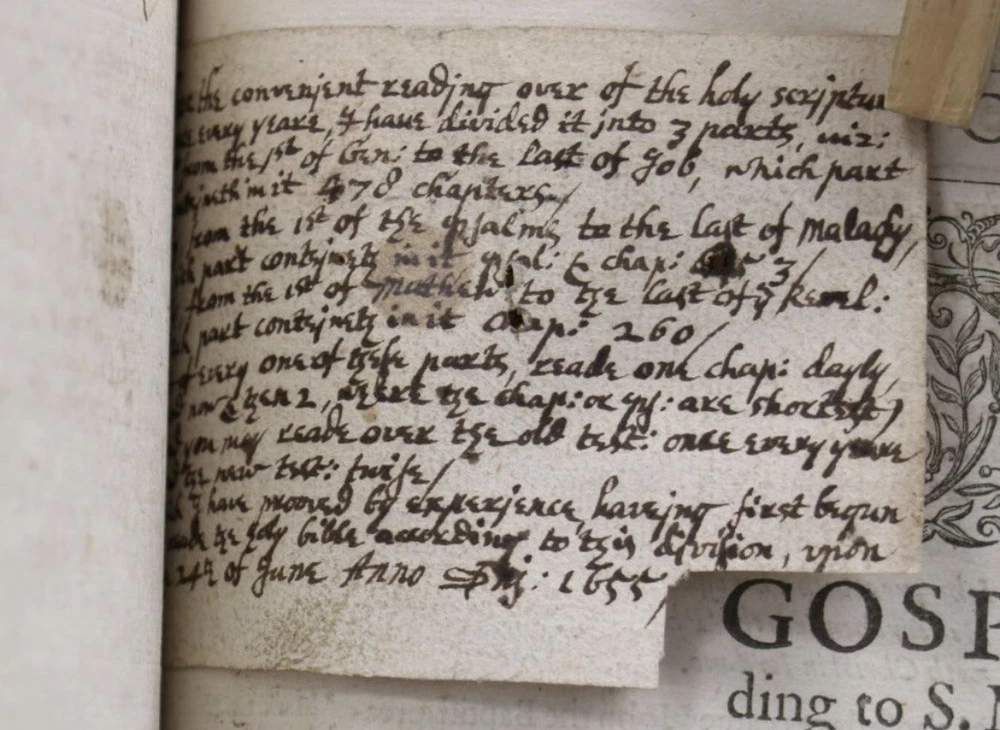 the convenjent readjng over of the holy scrjptu
every yeare, I have divided it jnto 3 parts, viz:
from the 1st of Gen: to the last of Job, which part
in it 478 chapters/
from the 1st of the psalms to the last of Malachy,
part contejneth in it psal: & chap: 3/
from the 1st of Mathew to the last of ye Revel:
part contejneth in it Chap: 260/
of every one of these parts, reade one chap: dayly,
now & then 2, where the chap: or ps: are shortest)
you may reade over the old test: once every yeare
the new test: twise/
I have prooved by experjence, havejng first begun
reade the holy bible according to this divisjon, vpon
24th of June Anno Dnj: 1655/
GOSP
ding to S.